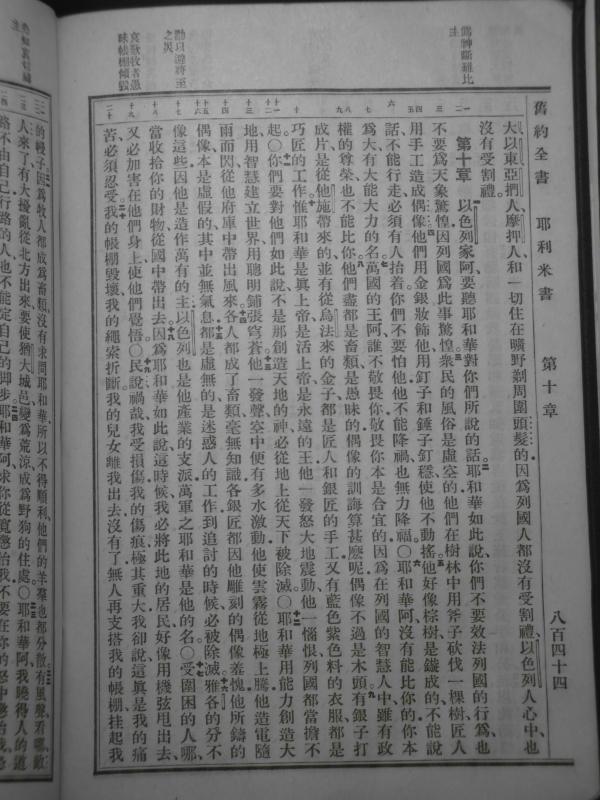 舊約全書 耶利米書 第十章 八百四十四
大以東亞捫人摩押人和一切住在曠野剃周圍頭髮的因爲列國人都沒有受割禮以色列人心中也
沒有受割禮
第十章 以色列家阿要聽耶和華對你們所說的話耶和華如此說你們不要效法列國的行爲也
不要爲天象驚惶因列國爲此事驚惶衆民的風俗是虛空的他們在樹林中用斧子砍伐一棵樹匠人
用手工造成偶像他們用金銀妝飾他用釘子和錘子釘穩使他不動搖他好像棕樹是鏇成的不能說
話不能行走必須有人抬着你們不要怕他他不能降禍也無力降福〇耶和華阿沒有能比你的你本
爲大有大能大力的名萬國的王阿誰不敬畏你敬畏你本是合宜的因爲在列國的智慧人中雖有政
權的尊榮也不能比你他們盡都是畜類是愚昧的偶像的訓誨算甚麽呢偶像不過是木頭有銀子打
成片是從他施帶來的並有從烏法來的金子都是匠人和銀匠的手工又有藍色紫色料的衣服都是
巧匠的工作惟耶和華是眞上帝是活上帝是永遠的王他一發怒大地震動他一惱恨列國都當擔不
起〇你們要對他們如此說不是那創造天地的神必從地上從天下被除滅〇耶和華用能力創造大
地用智慧建立世界用聰明鋪張穹蒼他一發聲空中便有多水激動他使雲霧從地極上騰他造電隨
雨而閃從他府庫中帶出風來各人都成了畜類毫無知識各銀匠都因他雕刻的偶像羞愧他所鑄的
偶像本是虛假的其中並無氣息都是虛無的是迷惑人的工作到追討的時候必被除滅雅各的分不
像這些因他是造作萬有的主以色列也是他產業的支派萬軍之耶和華是他的名〇受圍困的人哪
當收拾你的財物從國中帶出去因爲耶和華如此說這時候我必將此地的居民好像用機弦甩出去
又必加害在他們身上使他們覺悟〇民說禍哉我受損傷我的傷痕極其重大我卻說這眞是我的痛
苦必須忍受我的帳棚毀壞我的繩索折斷我的兒女離我出去沒有了無人再支搭我的帳棚挂起我
的幔子因爲牧人都成爲畜類沒有求問耶和華所以不得順利他們的羊羣也都分散有風聲看哪敵
人來了有大擾亂從北方出來要使猶大城邑變爲荒涼成爲野狗的住處〇耶和華阿我曉得人的道
路不由自己行路的人也不能定自己的脚步耶和華阿求你從寬懲治我不要在你的怒中懲治我